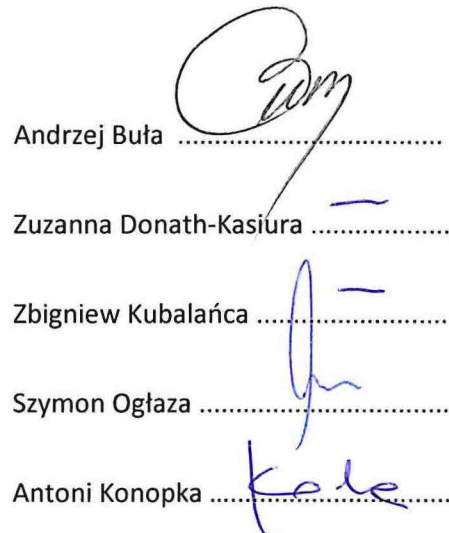 Andrzej Buła ................................
Zuzanna Donath-Kasiura ...................
Zbigniew Kubalańca ..........................
Szymon Ogłaza ................................
Antoni Konopka ...............................